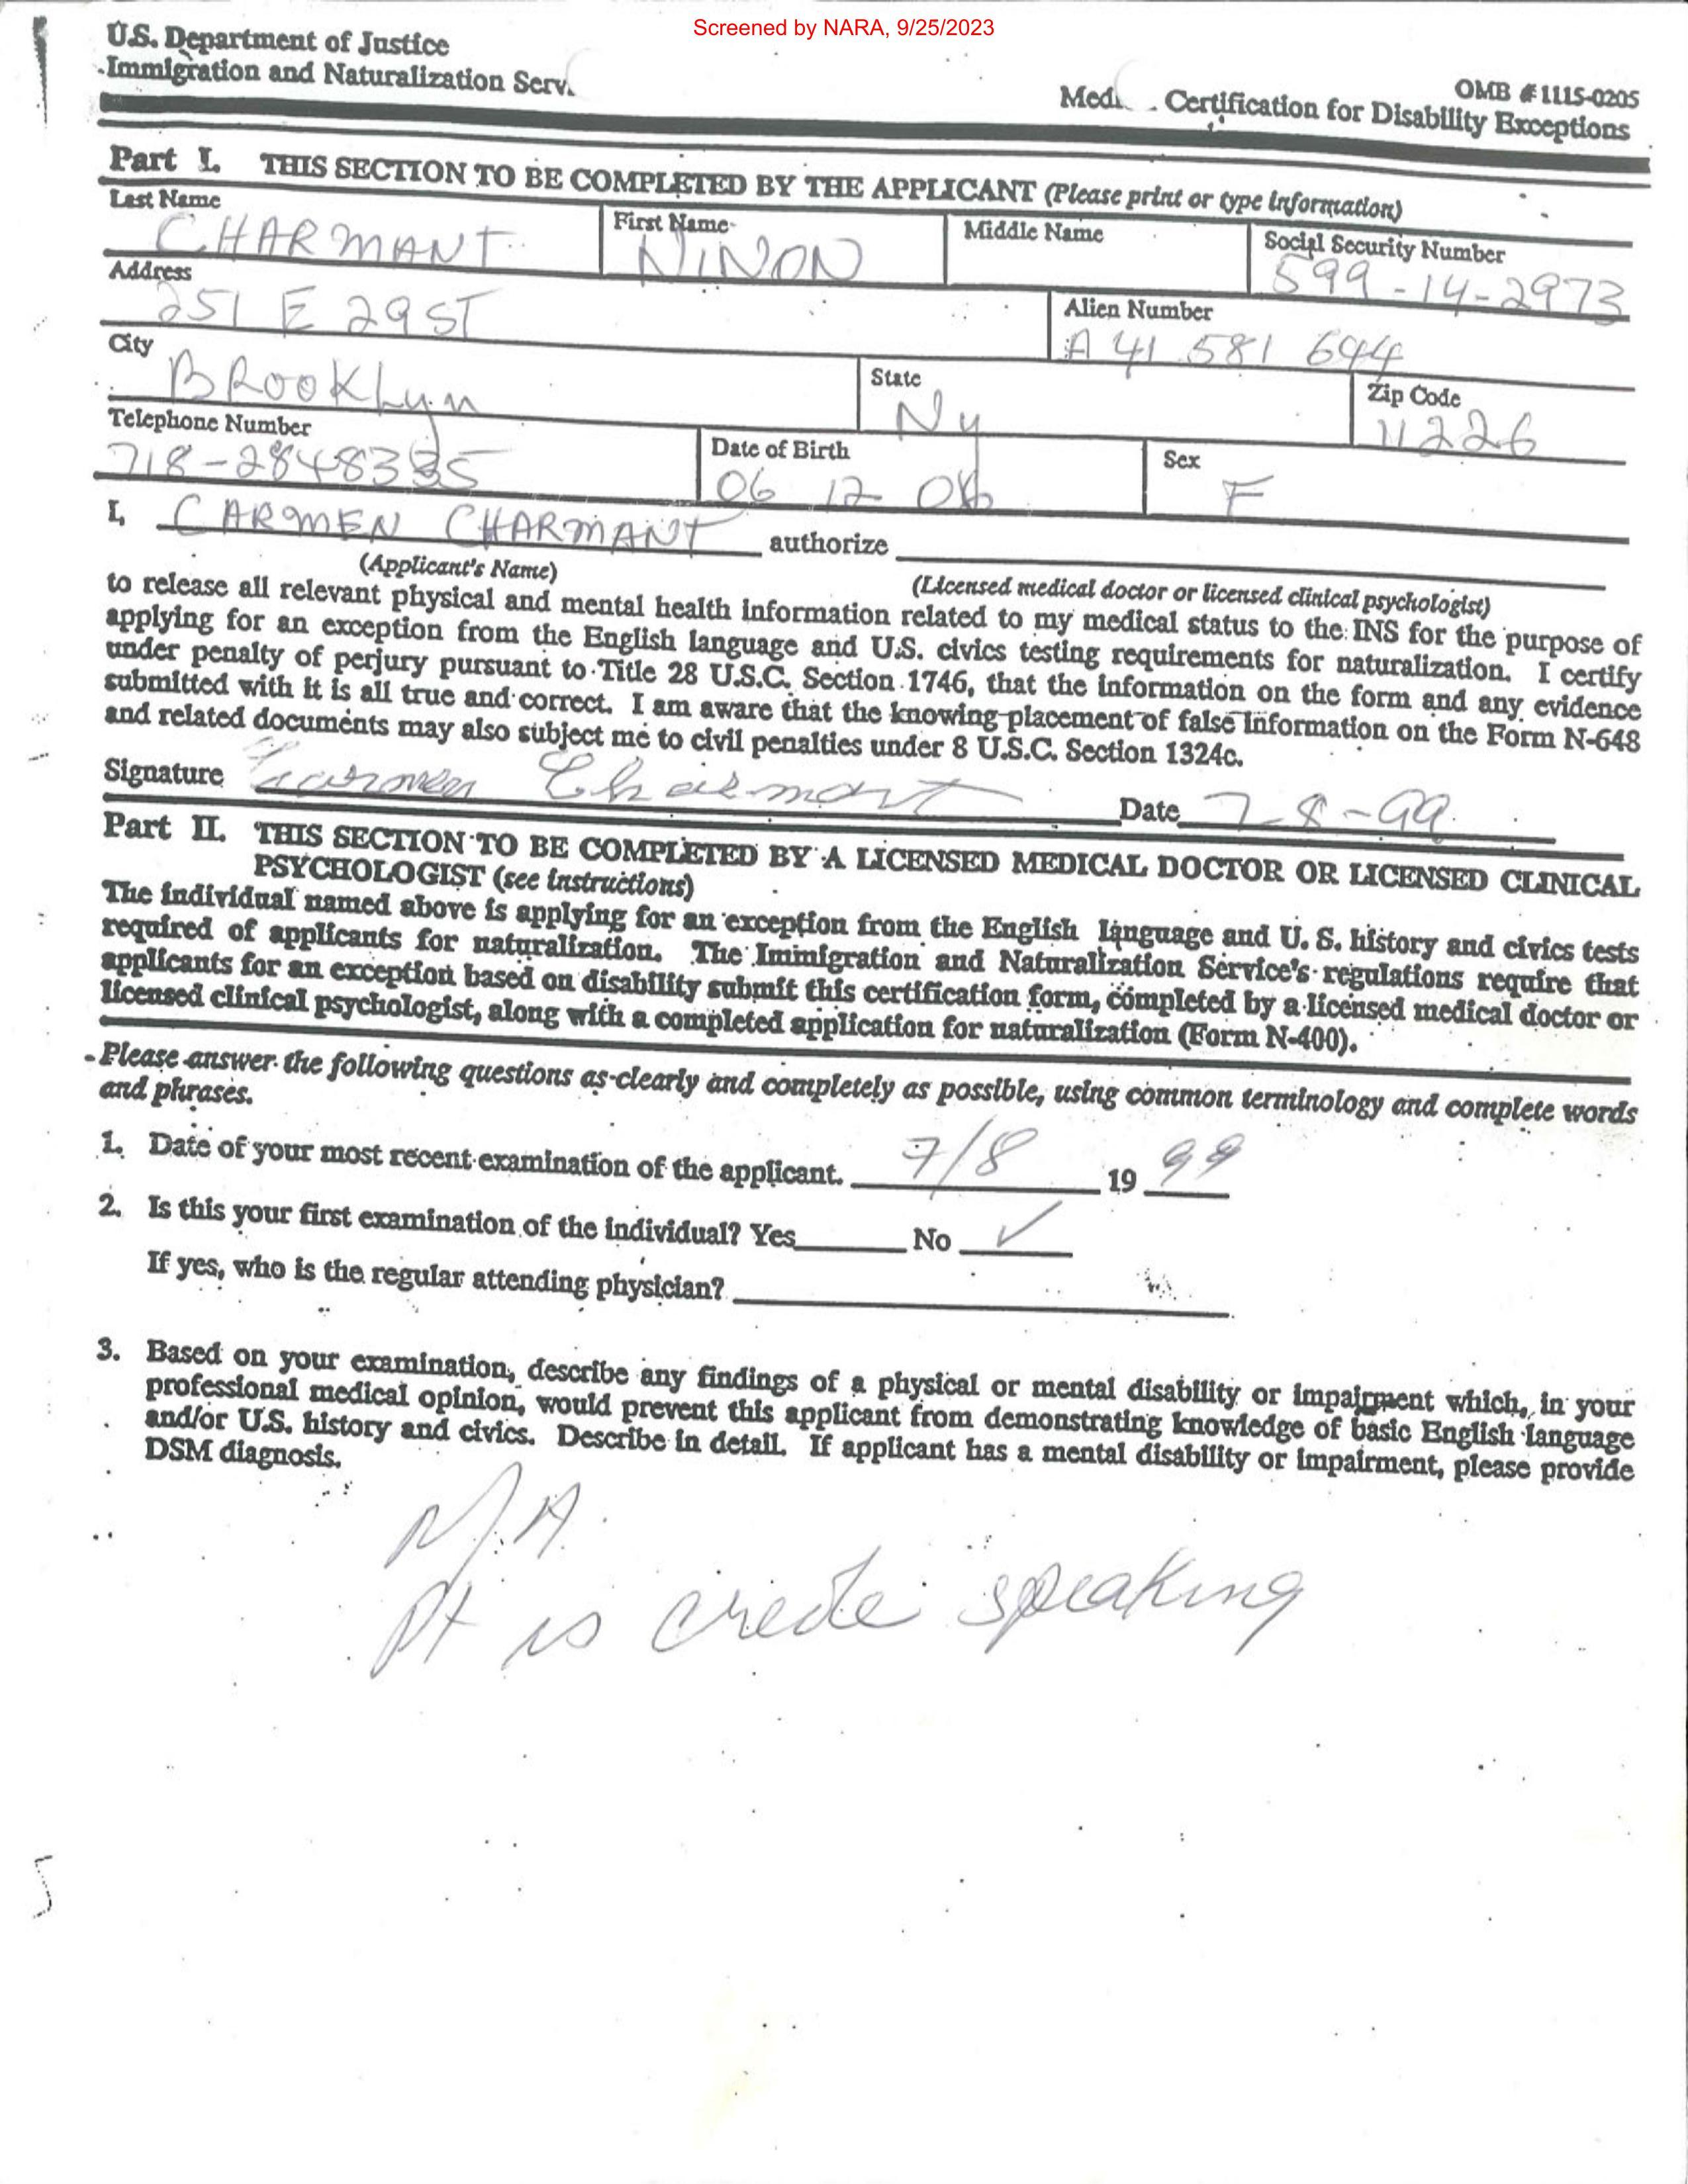 Screened by NARA, 9/25/2023
U.S. Department of Justice
Immigration and Naturalization Serv
OMB #1115-0205
Med Certification for Disability Exceptions
Part I. THIS SECTION TO BE COMPLETED BY THE APPLICANT (Please print or type information)
Last Name First Name Middle Name Social Security Number
CHARMANT NINON 599-14-2973
Address Alien Number
251 E 29 ST A 41 581 644
City State Zip Code
BROOKLyn Ny 11226
Telephone Number Date of Birth Sex
718- 06 12 F
I, CARMEN CHARMANT authorize
(Applicant's Name) (Licensed medical doctor or licensed clinical psychologist)
to release all relevant physical and mental health information related to my medical status to the INS for the purpose of
applying for an exception from the English language and U.S. civics testing requirements for naturalization. I certify
under penalty of perjury pursuant to Title 28 U.S.C. Section 1746, that the information on the form and any evidence
submitted with it is all true and correct. I am aware that the knowing placement of false information on the Form N-648
and related documents may also subject me to civil penalties under 8 U.S.C. Section 1324c.
Signature Carmen Charmant Date 7-8-99
Part II. THIS SECTION TO BE COMPLETED BY A LICENSED MEDICAL DOCTOR OR LICENSED CLINICAL
PSYCHOLOGIST (see instructions)
The individual named above is applying for an exception from the English language and U. S. history and civics tests
required of applicants for naturalization. The Immigration and Naturalization Service's regulations require that
applicants for an exception based on disability submit this certification form, completed by a licensed medical doctor or
licensed clinical psychologist, along with a completed application for naturalization (Form N-400).
Please answer the following questions as clearly and completely as possible, using common terminology and complete words
and phrases.
1. Date of your most recent examination of the applicant. 7/8 19 99
2. Is this your first examination of the individual? Yes No ✓
If yes, who is the regular attending physician?
3. Based on your examination, describe any findings of a physical or mental disability or impairment which, in your
professional medical opinion, would prevent this applicant from demonstrating knowledge of basic English language
and/or U.S. history and civics. Describe in detail. If applicant has a mental disability or impairment, please provide
DSM diagnosis.
N/A
Pt is creole speaking